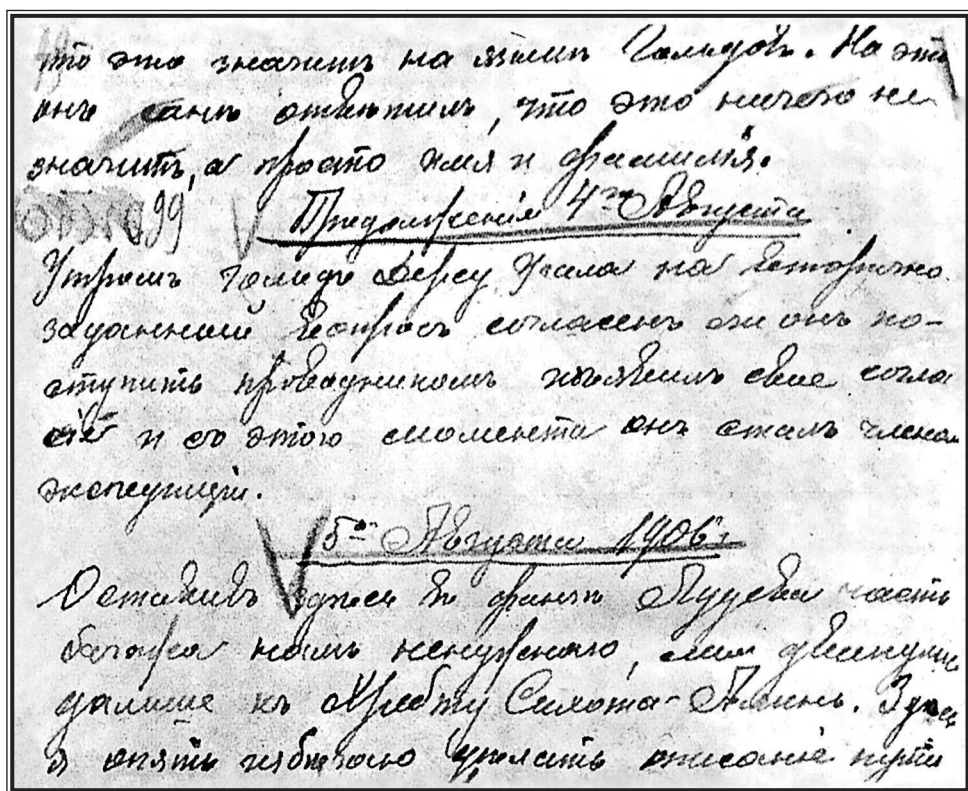 что это значитъ на языкѣ Гольдовъ. На это
онъ самъ отвѣтилъ, что это ничего не
значитъ, а просто имя и фамилія.
99
Продолженіе 4го Августа
Утромъ гольдъ Дерсу Узала на вторично
заданный вопросъ согласенъ ли онъ по-
ступить проводникомъ изъявилъ свое согла
сіе и съ этого момента онъ сталъ членом
экспедиціи.
5го Августа 1906 г.
Оставивъ здѣсь въ фанзѣ часть
багажа намъ ненужнаго, мы двинулись
дальше къ хребту Сихотэ-Алинь. Здѣсь
я опять избѣгаю дѣлать описаніе пути